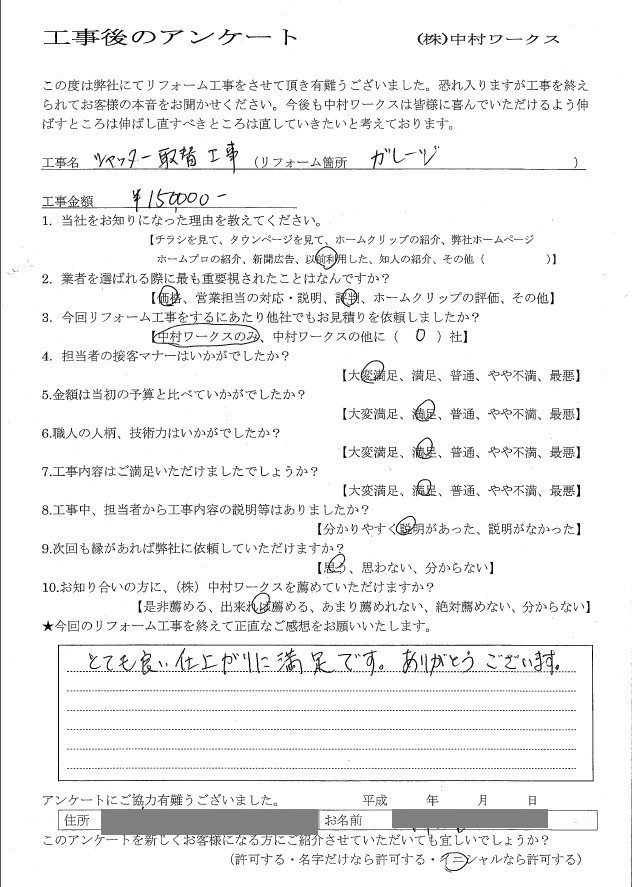 工事後のアンケート (株)中村ワークス
この度は弊社にてリフォーム工事をさせて頂き有難うございました。恐れ入りますが工事を終え
られてお客様の本音をお聞かせください。今後も中村ワークスは皆様に喜んでいただけるよう伸
ばすところは伸ばし直すべきところは直していきたいと考えております。
工事名 シャッター取替工事 (リフォーム箇所 ガレージ )
工事金額 ¥150,000-
1. 当社をお知りになった理由を教えてください。
【チラシを見て、タウンページを見て、ホームクリップの紹介、弊社ホームページ
ホームプロの紹介、新聞広告、以前利用した、知人の紹介、その他( )】
2. 業者を選ばれる際に最も重要視されたことはなんですか?
【価格、営業担当の対応・説明、評判、ホームクリップの評価、その他】
3. 今回リフォーム工事をするにあたり他社でもお見積りを依頼しましたか?
【中村ワークスのみ、中村ワークスの他に( 0 )社】
4. 担当者の接客マナーはいかがでしたか?
【大変満足、満足、普通、やや不満、最悪】
5.金額は当初の予算と比べていかがでしたか?
【大変満足、満足、普通、やや不満、最悪】
6.職人の人柄、技術力はいかがでしたか?
【大変満足、満足、普通、やや不満、最悪】
7.工事内容はご満足いただけましたでしょうか?
【大変満足、満足、普通、やや不満、最悪】
8.工事中、担当者から工事内容の説明等はありましたか?
【分かりやすく説明があった、説明がなかった】
9.次回も縁があれば弊社に依頼していただけますか?
【思う、思わない、分からない】
10.お知り合いの方に、(株)中村ワークスを薦めていただけますか?
【是非薦める、出来れば薦める、あまり薦めれない、絶対薦めない、分からない】
★今回のリフォーム工事を終えて正直なご感想をお願いいたします。
とても良い仕上がりに満足です。ありがとうございます。
アンケートにご協力有難うございました。 平成 年 月 日
住所 お名前
このアンケートを新しくお客様になる方にご紹介させていただいても宜しいでしょうか?
(許可する・名字だけなら許可する・イニシャルなら許可する)